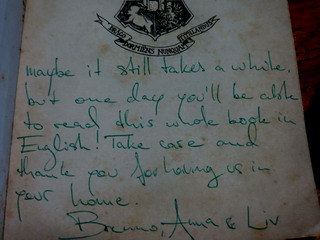 DRACO DORMIENS NUNQUAM TITILLANDUS
maybe it still takes a while,
but one day you'll be able
to read this whole book in
English! Take care and
thank you for having us in
your home.
Brenno, Anna & Liv